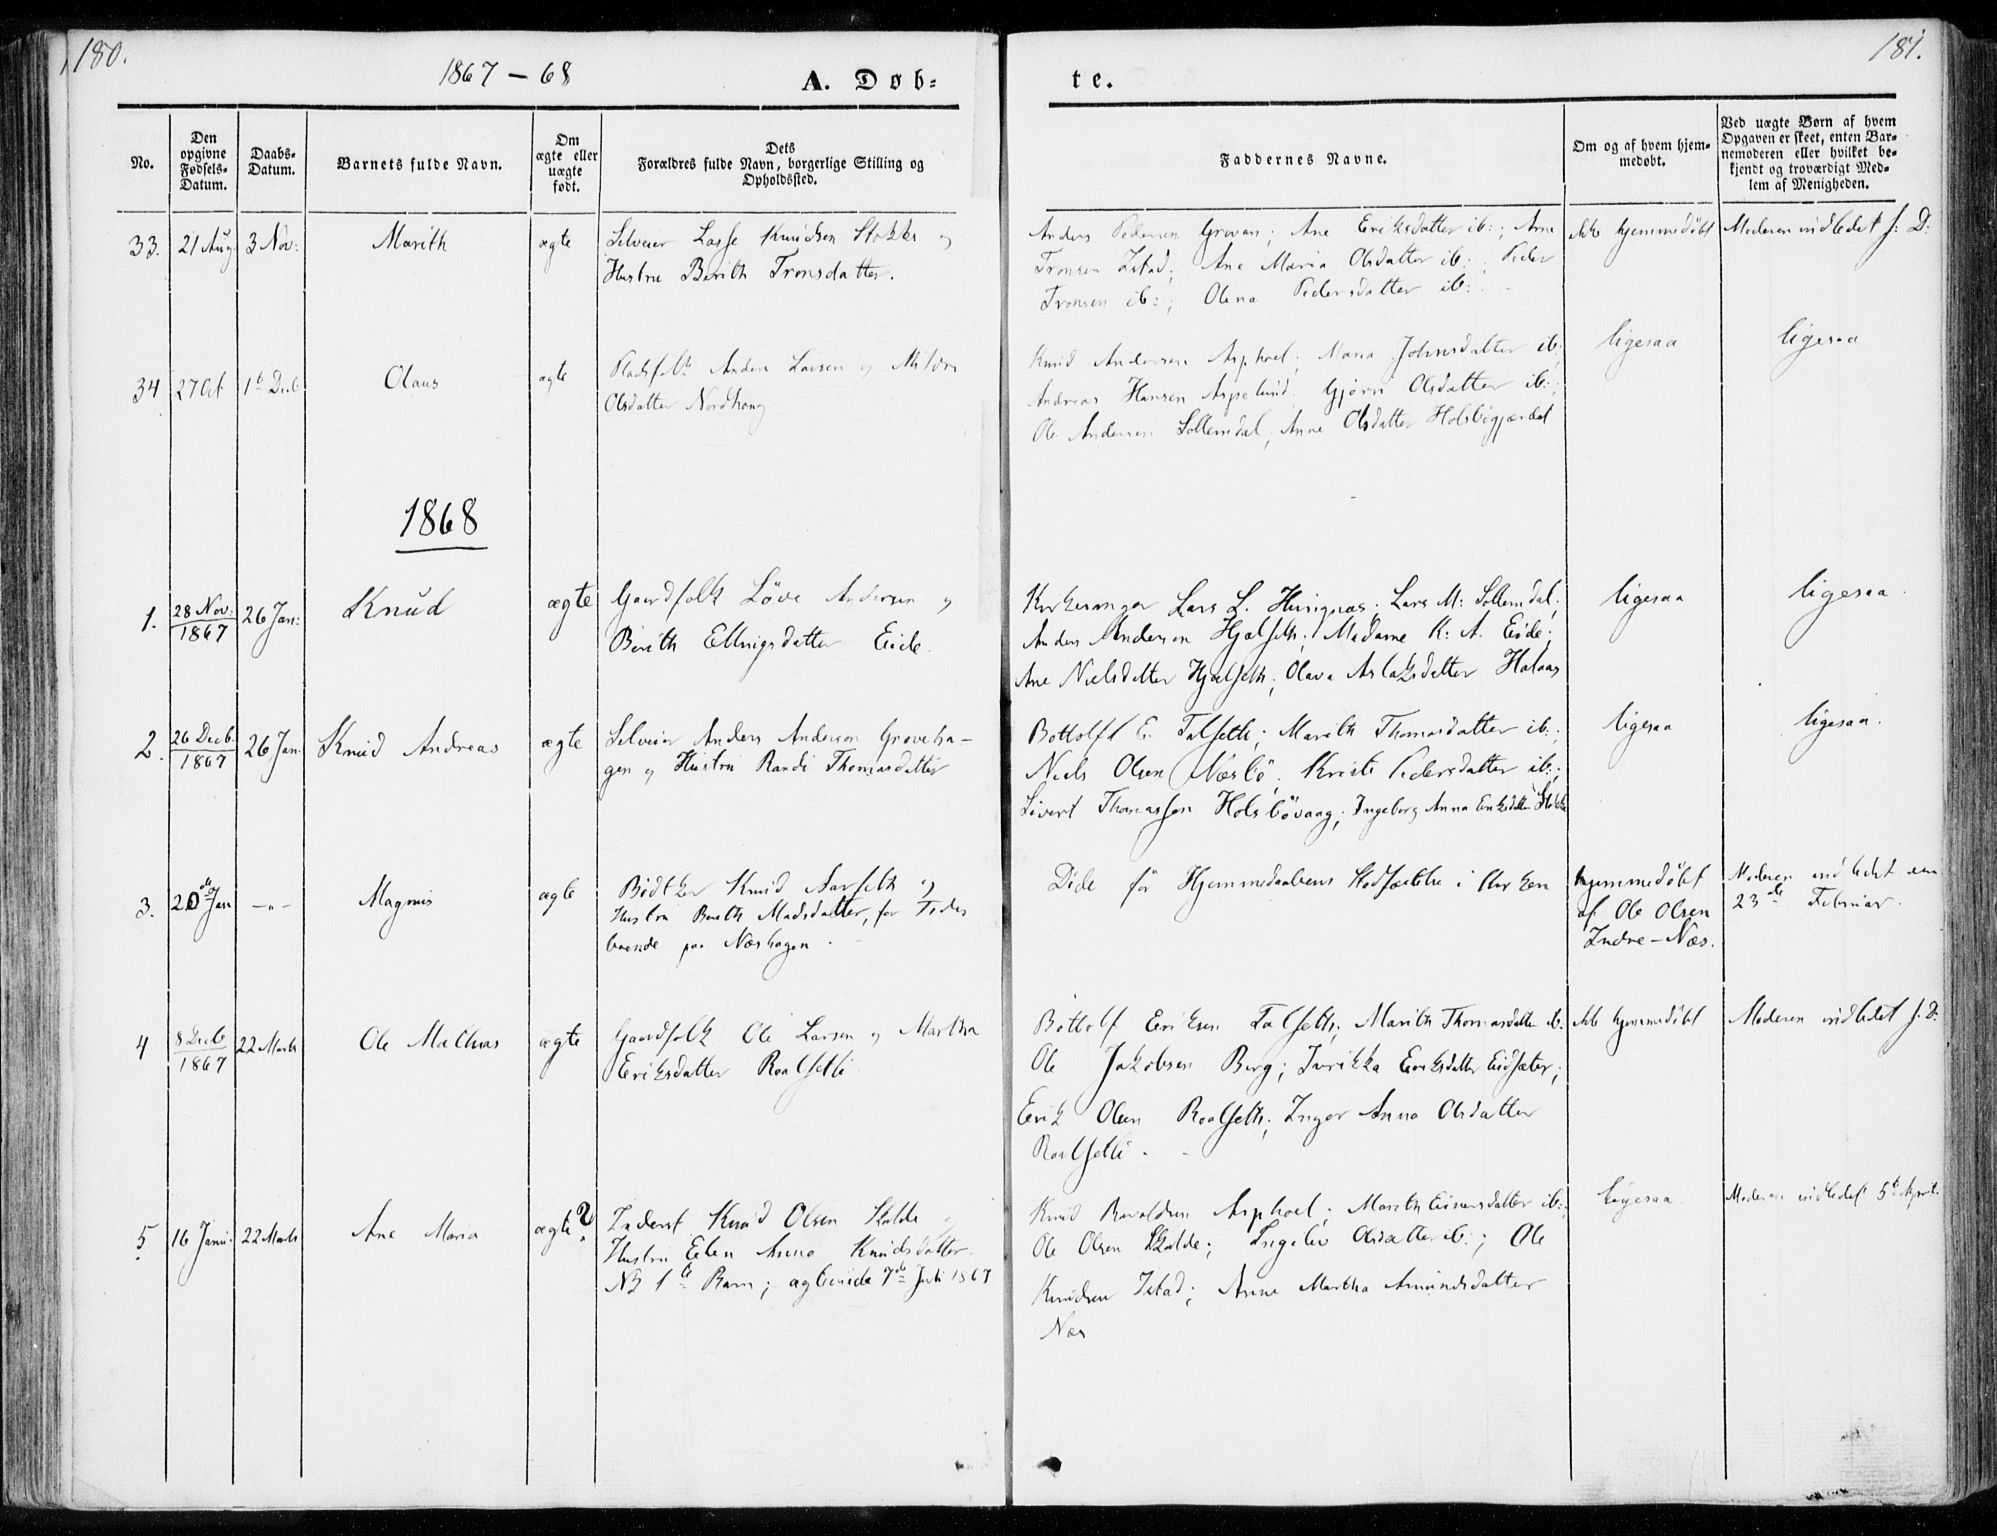 180.
1867 - 68
A. Døb-
te.
181.
No.
Den opgivne Fødsels-Datum.
Daabs-Datum.
Barnets fulde Navn.
Om ægte eller uægte født.
Dets Forældres fulde Navn, borgerlige Stilling og Opholdssted.
Faddernes Navne.
Om og af hvem hjem-medøbt.
Ved uægte Børn af hvem
Opgaven er skeet, enten Bar-
nemoderen eller hvilket be-
kjendt og troværdigt Med-
lem af Menigheden.
33. 21 Aug 3 Nov: Marith ægte
Selveier Lasse Knudsen Stokke og
Hustru Berith Tronsdatter.
Anders Pedersen Grovan; Ane Eriksdatter ib:; Arne
Tronsen Istad; Ane Maria Olsdatter ib:; Peder
Tronsen ib:; Olena Pedersdatter ib:
ikke hjemmedøbt
Moderen indledet s: D:
34 27 Oct 1te Decb Olaus ægte
Pladsfolk Anders Larsen og
Olsdatter Nordhaug
Knud Andersen Asphoel; Maria Johnsdatter ib;
Andreas Hansen Aspelund; Gjøru Olsdatter ib:;
Ole Andersen Sollemdal; Anne Olsdatter Holsbøgjærdet
ligesaa
ligesaa
1868
1. 28 Nov: 1867 26 Jan: Knud ægte
Gaardfolk Løve Andersen og
Berith Ellingsdatter Eide.
Kirkesanger Lars L. Husignæs; Lars M: Sollemdal;
Anders Andersen Hjelseth; Madame K: A. Eide;
Ane Nielsdatter Hjelseth; Olava Aslaksdatter Halaas
ligesaa
ligesaa
2. 26 Decb. 1867 26 Jan. Knud Andreas ægte
Selveier Anders Anderson Groveha-
gen og Hustru Randi Thomasdatter
Bottolf E. Talseth; Marith Thomasdatter ib:;
Niels Olsen Næsbø; Kristi Pedersdatter ib:;
Sivert Thomassen Holsbøvaag; Ingeborg Anna Eriksdatter Stokke
ligesaa
ligesaa.
3. 20de Jan -"- Magnus ægte
Bødtker Knud Aarseth og
Hustru Berith Madsdatter, for Tiden
boende paa Næshagen.
Døde før Hjemmedaabens Stadfæstelse i Kirken
hjemmedøbt
af Ole Olsen
Indre-Næs.
Moderen indledet den
23de Februar.
4 8 Decb 1867 22 Marts Ole Mathias ægte
Gaardfolk Ole Larsen og Martha
Eriksdatter Roalsetli
Bottolf Eriksen Talseth; Marith Thomasdatter ib:
Ole Jakobsen Berg; Eriksdatter Eidsæter;
Erik Olsen Roalseth; Inger Anna Olsdatter
Roalsetli.
ikke hjemmedøbt
Moderen indledet s. D.
5 16 Janu: 22 Marts Ane Maria ægte?
Inderst Knud Olsen Skalde og
Hustru Elen Anna Knudsdatter.
NB 1te Barn; ægteviede 7de Juli 1867
Knud Asphoel; Marith Einarsdatter ib:;
Ole Olsen Skalde; Ingeliv Olsdatter ib:; Ole
Knudsen Istad; Anne Martha Amundsdatter
Næs
ligesaa.
Moderen indledet 5te April.